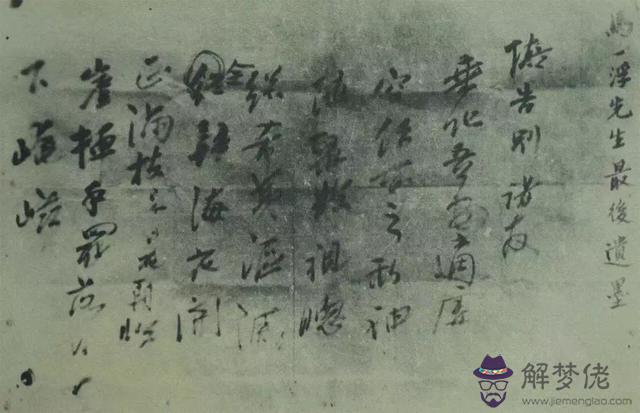 馬一浮先生最後遺墨
擬告別諸友
乘化吾安適虛
空任所之形神
隨聚散視聽
總希夷漚滅
全歸海花開
正滿枝臨
崖揮手罷落日
下崦嵫
解梦佬
www.jiemenglao.com